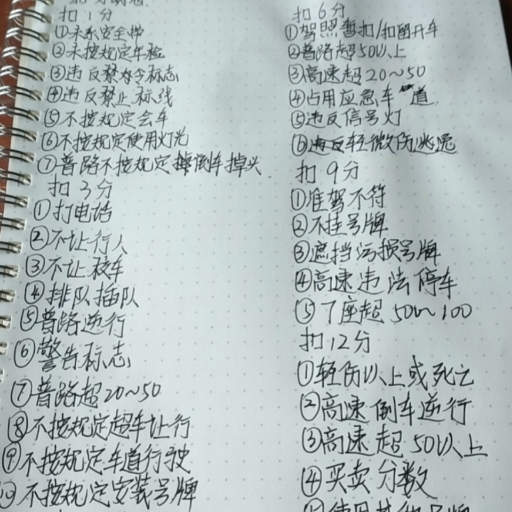 扣1分
①未系安全带
②未按规定年检
③违反禁令标志
④违反禁止标线
⑤不按规定会车
⑥不按规定使用灯光
⑦普路不按规定 倒车掉头
扣3分
①打电话
②不让行人
③不让校车
④排队插队
⑤普路逆行
⑥警告标志
⑦普路超20~50
⑧不按规定超车让行
⑨不按规定车道行驶
⑩不按规定安装号牌
扣6分
①驾照暂扣/扣留开车
②普路超50以上
③高速超20~50
④占用应急车道
⑤违反信号灯
⑥违反轻微伤逃逸
扣9分
①准驾不符
②不挂号牌
③遮挡污损号牌
④高速违法停车
⑤7座超50~100
扣12分
①轻伤以上或死亡
②高速倒车逆行
③高速超50以上
④买卖分数